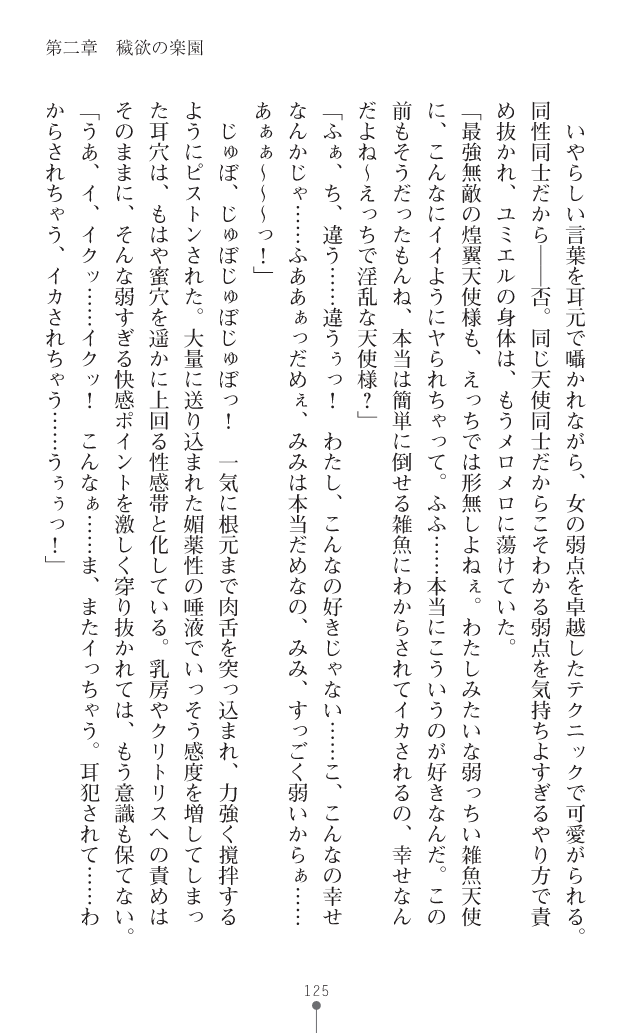 第二章　穢欲の楽園
　いやらしい言葉を耳元で囁かれながら、女の弱点を卓越したテクニックで可愛がられる。
同性同士だから――否。同じ天使同士だからこそわかる弱点を気持ちよすぎるやり方で責
め抜かれ、ユミエルの身体は、もうメロメロに蕩けていた。
「最強無敵の煌翼天使様も、えっちでは形無しよねぇ。わたしみたいな弱っちい雑魚天使
に、こんなにイイようにヤられちゃって。ふふ……本当にこういうのが好きなんだ。この
前もそうだったもんね、本当は簡単に倒せる雑魚にわからされてイカされるの、幸せなん
だよね～えっちで淫乱な天使様？」
「ふぁ、ち、違う……違うぅっ！　わたし、こんなの好きじゃない……こ、こんなの幸せ
なんかじゃ……ふああぁっだめぇ、みみは本当だめなの、みみ、すっごく弱いからぁ……
あぁぁ～～～っ！」
　じゅぼ、じゅぼじゅぼじゅぼっ！　一気に根元まで肉舌を突っ込まれ、力強く撹拌する
ようにピストンされた。大量に送り込まれた媚薬性の唾液でいっそう感度を増してしまっ
た耳穴は、もはや蜜穴を遥かに上回る性感帯と化している。乳房やクリトリスへの責めは
そのままに、そんな弱すぎる快感ポイントを激しく穿り抜かれては、もう意識も保てない。
「うあ、イ、イクッ……イクッ！　こんなぁ……ま、またイっちゃう。耳犯されて……わ
からされちゃう、イカされちゃう……うぅぅっ！」
125